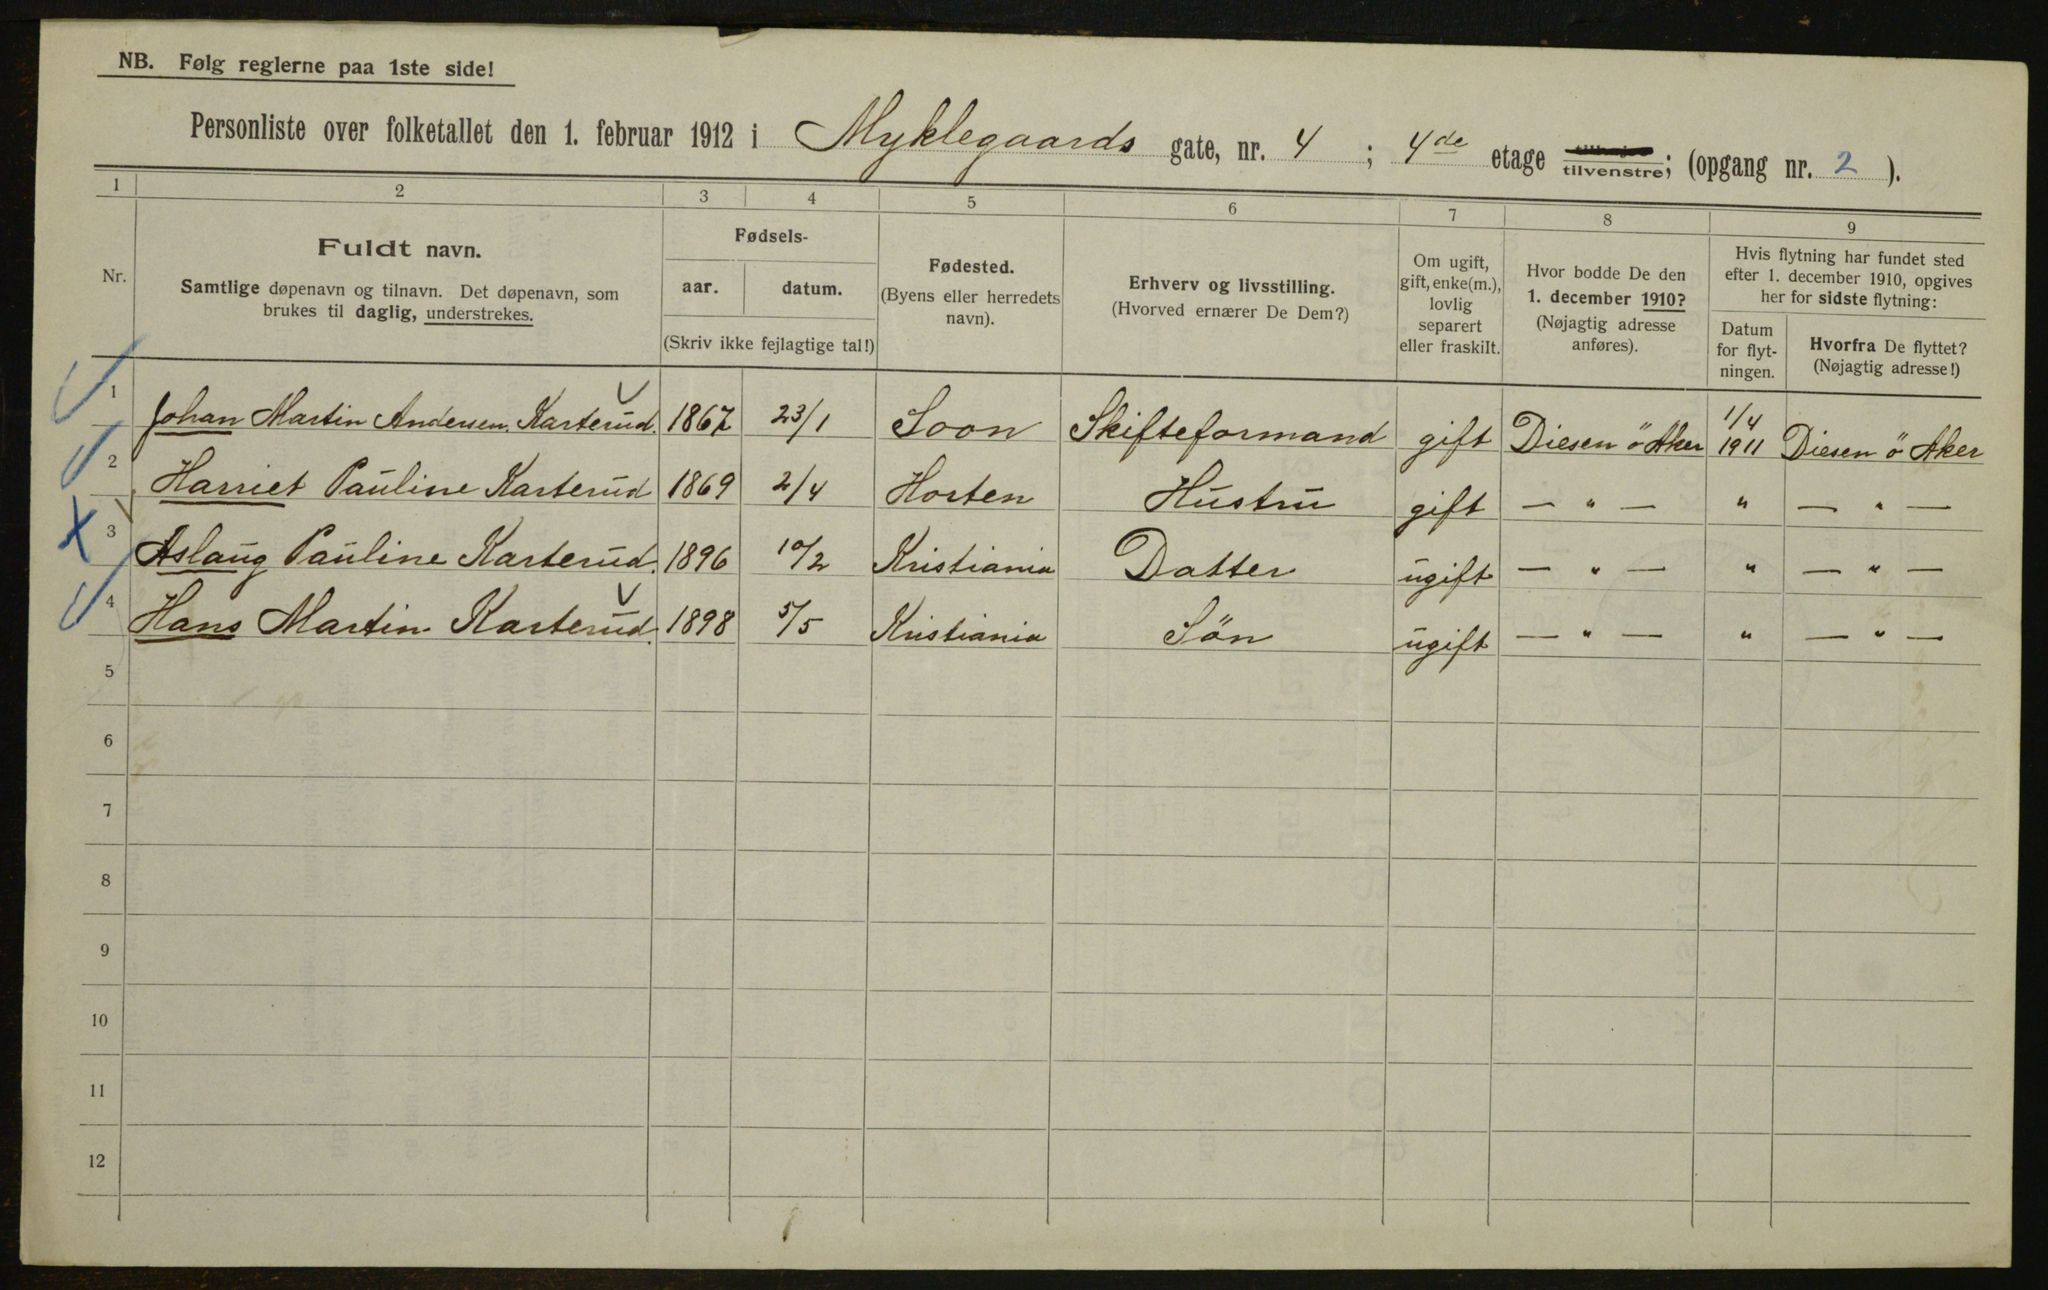 NB. Følg reglerne paa 1ste side!
Personliste over folketallet den 1. februar 1912 i Myklegaards gate, nr. 4 ; 4de etage tilhøjre tilvenstre; (opgang nr. 2 ).
1 2 3 4 5 6 7 8 9
Nr.
Fuldt navn.
Samtlige døpenavn og tilnavn. Det døpenavn, som
brukes til daglig, understrekes.
Fødsels-
aar. datum.
(Skriv ikke fejlagtige tal!)
Fødested.
(Byens eller herredets
navn).
Erhverv og livsstilling.
(Hvorved ernærer De Dem?)
Om ugift,
gift, enke(m.),
lovlig
separert
eller fraskilt.
Hvor bodde De den
1. december 1910?
(Nøjagtig adresse
anføres).
Hvis flytning har fundet sted
efter 1. december 1910, opgives
her for sidste flytning:
Datum
for flyt-
ningen.
Hvorfra De flyttet?
(Nøjagtig adresse!)
1 Johan Martin Andersen Karterud. 1867 23/1 Soon Skifteformand gift Diesen ö Aker 1/4 1911 Diesen ö Aker
2 Harriet Pauline Karterud 1869 2/4 Horten Hustru gift — " — " — " —
3 Aslaug Pauline Karterud. 1896 10/2 Kristiania Datter ugift — " — " — " —
4 Hans Martin Karterud. 1898 5/5 Kristiania Sön ugift — " — " — " —
5
6
7
8
9
10
11
12